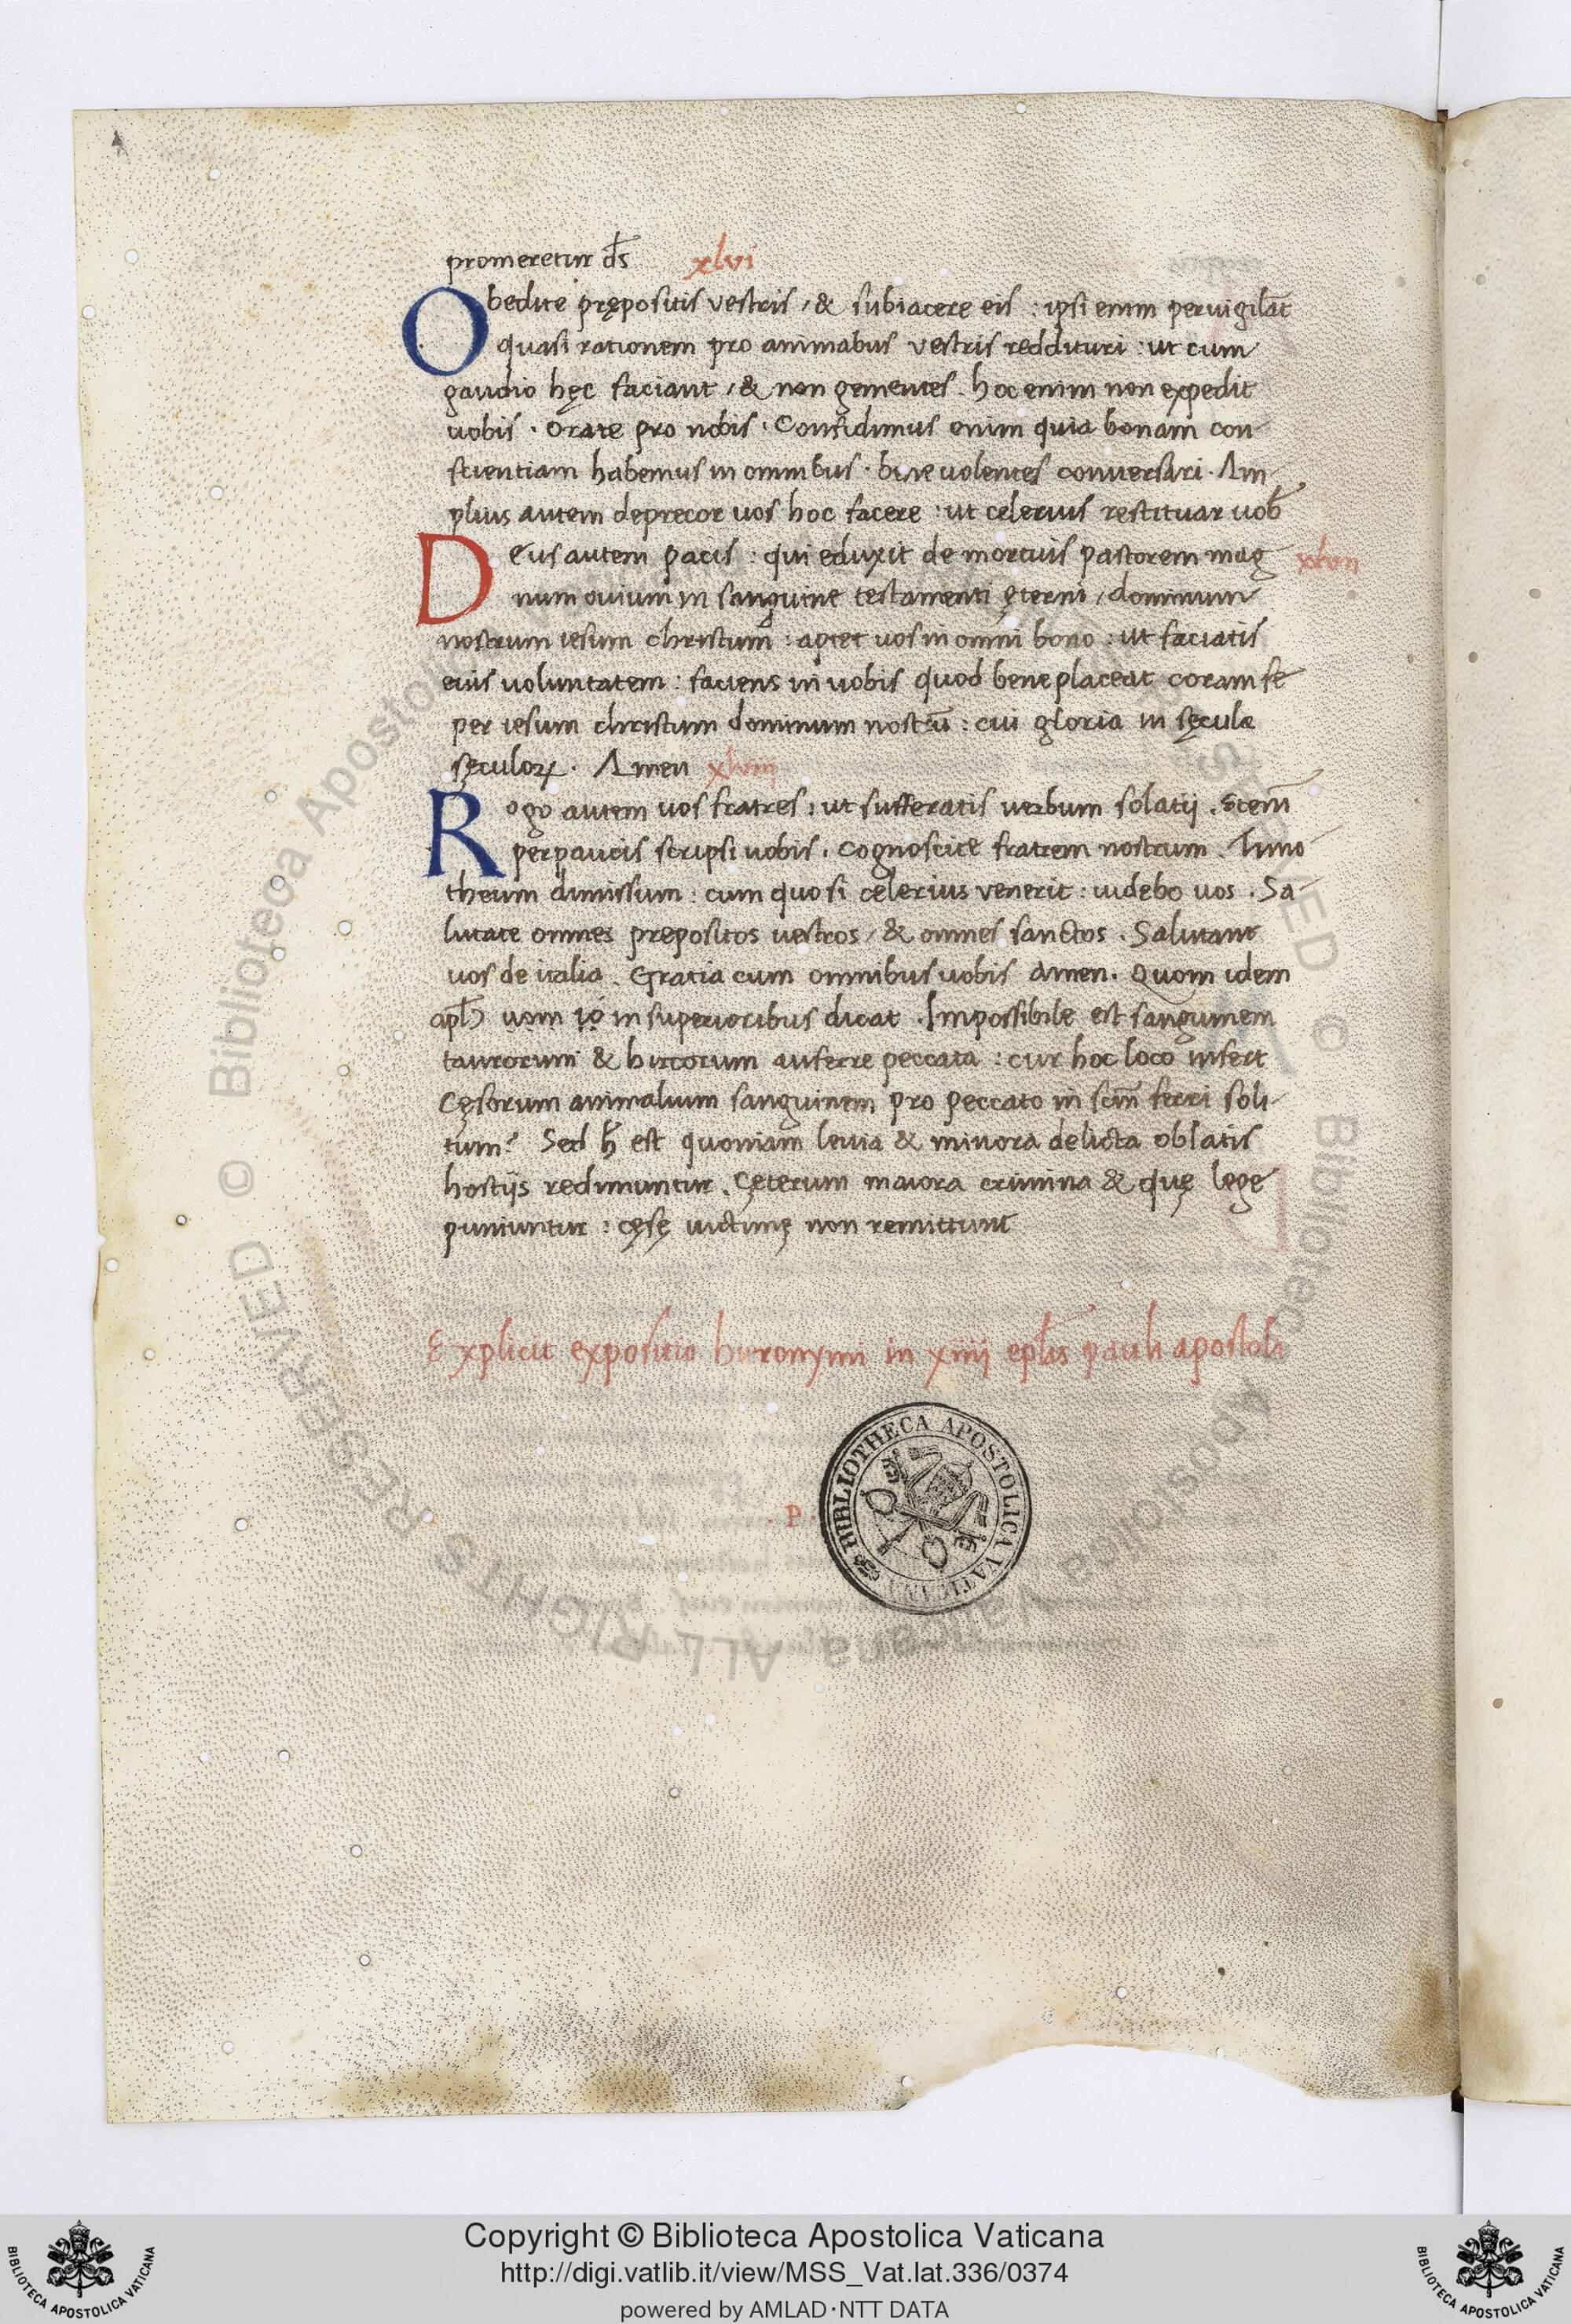 promeretur ds̄ xlvi
Obedite prępositis vestris / & subiacete eis : ipsi enim peruigilāt
quasi rationem pro animabus vestris reddituri : ut cum
gaudio hęc faciant / & non gementes . hoc enim non expedit
uobis . orate pro nobis . Confidimus enim quia bonam con
scientiam habemus in omnibus . bene uolentes conuersari . Am-
plius autem deprecor uos hoc facere : ut celerius restituar uob̄
Deus autem pacis : qui eduxit de mortuis pastorem mag xlvii
num ouium in sanguine testamenti ęterni / dominum
nostrum iesum christum : aptet uos in omni bono : ut faciatis
eius uoluntatem : faciens in uobis quod bene placeat coram se
per iesum christum dominum nostrū : cui gloria in sęcula
sęculoꝝ . Amen xlviii
Rogo autem uos fratres : ut sufferatis uerbum solatij . etem̄
perpaucis scripsi uobis . cognoscite fratrem nostrum . Timo
theum dimissum : cum quo si celerius venerit : uidebo uos . Sa-
lutate omnes prepositos vestros / & omnes sanctos . Salutant
uos de italia . Gratia cum omnibus uobis amen . Quom idem
apl̄s in superioribus dicat . Impossibile est sanguinem
taurorum & hircorum auferre peccata : cur hoc loco infert
Cęsorum animalium sanguinem pro peccato in scm̄ ferri soli-
tum ? Sed h̄ est quoniam leuia & minora delicta oblatis
hostijs redimuntur . Cęterum maiora crimina & quę lege
puniuntur : cęsę uictimę non remittunt
Explicit expositio hieronymi in xiiii ep̄las pauli apostoli
. P .
BIBLIOTHECA APOSTOLICA VATICANA
© Biblioteca Apostolica Vaticana ALL RIGHTS RESERVED
Copyright © Biblioteca Apostolica Vaticana
http://digi.vatlib.it/view/MSS_Vat.lat.336/0374
powered by AMLAD·NTT DATA
BIBLIOTECA APOSTOLICA VATICANA
BIBLIOTECA APOSTOLICA VATICANA